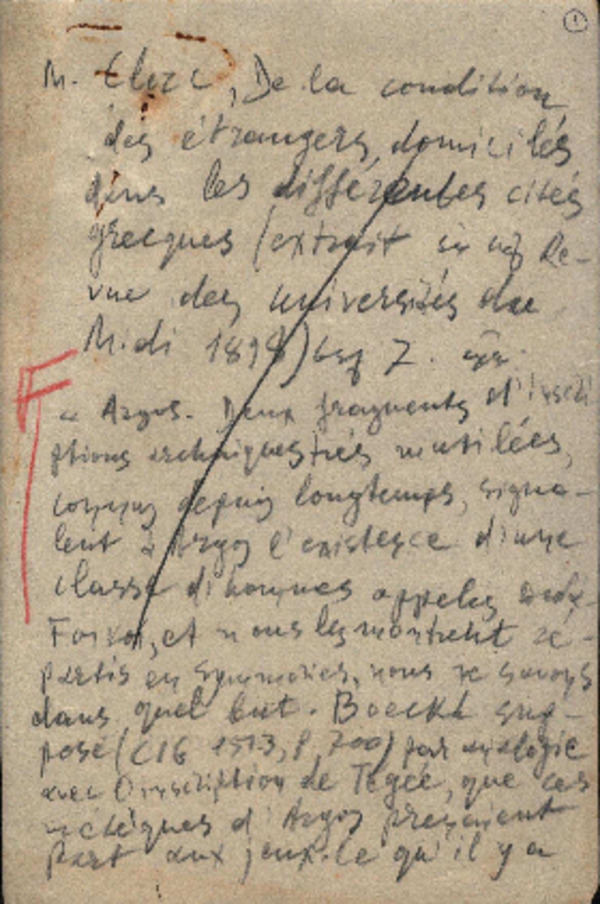 1
M. Clerc, De la condition
des étrangers domiciliés
dans les différentes cités
grecques (extrait Re-
vue des universités du
Midi 1898) 7.
" Argos. Deux fragments d'inscri
ptions archaïques très mutilées,
connus depuis longtemps, signa-
lent à Argos l'existence d'une
classe d'hommes appelés
Fοικοι, et nous les montrent ré-
partis en symmories, nous ne savons
dans quel but. Boeckh sup-
pose (CIG 1513, p. 700) par analogie
avec l'inscription de Tégée, que ces
métèques d'Argos prenaient
part aux jeux. Ce qu'il y a